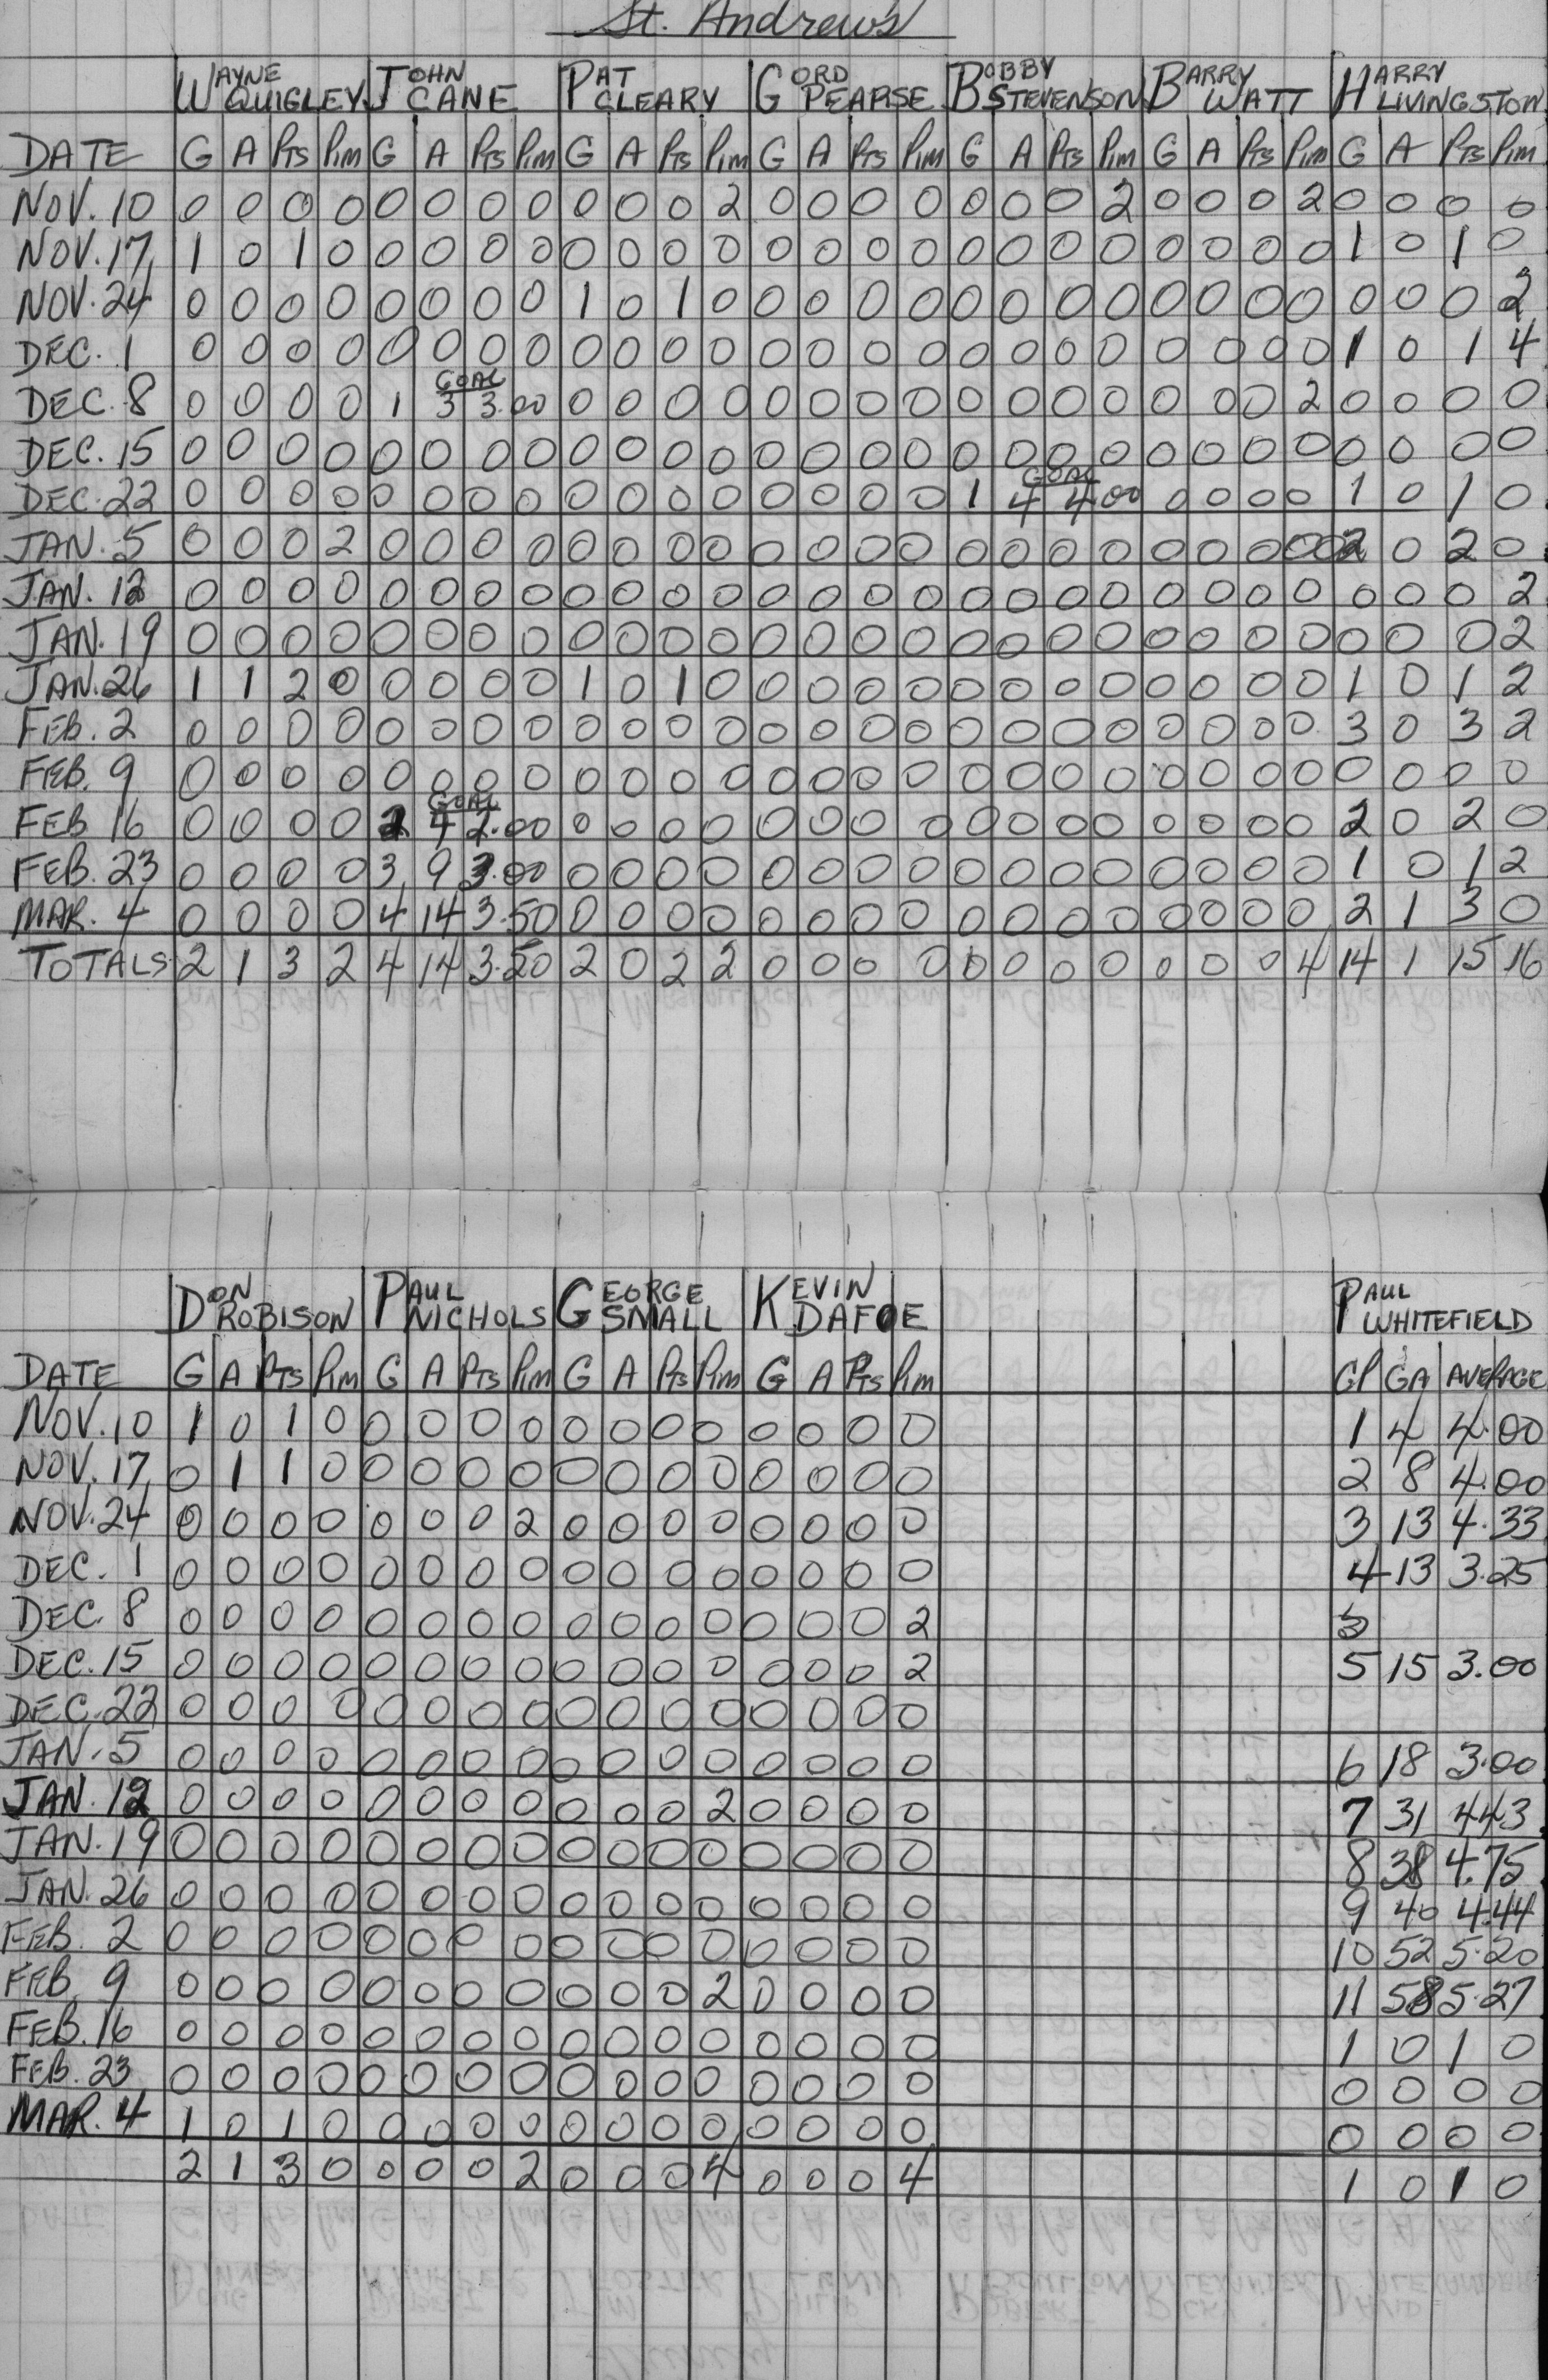 St. Andrew's
WAYNE QUIGLEY JOHN CANE PAT CLEARY GORD PEARSE BOBBY STEVENSON BARRY WATT HARRY LIVINGSTON
DATE G A Pts Pim G A Pts Pim G A Pts Pim G A Pts Pim G A Pts Pim G A Pts Pim G A Pts Pim
NOV. 10 0 0 0 0 0 0 0 0 0 0 0 2 0 0 0 0 0 0 0 2 0 0 0 2 0 0 0 0
NOV. 17 1 0 1 0 0 0 0 0 0 0 0 0 0 0 0 0 0 0 0 0 0 0 0 0 1 0 1 0
NOV. 24 0 0 0 0 0 0 0 0 1 0 1 0 0 0 0 0 0 0 0 0 0 0 0 0 0 0 0 2
DEC. 1 0 0 0 0 0 0 0 0 0 0 0 0 0 0 0 0 0 0 0 0 0 0 0 0 1 0 1 4
GOAL
DEC. 8 0 0 0 0 1 3 3.00 0 0 0 0 0 0 0 0 0 0 0 0 0 0 0 2 0 0 0 0
DEC. 15 0 0 0 0 0 0 0 0 0 0 0 0 0 0 0 0 0 0 0 0 0 0 0 0 0 0 0 0
GOAL
DEC. 22 0 0 0 0 0 0 0 0 0 0 0 0 0 0 0 0 1 4 4.00 0 0 0 0 1 0 1 0
JAN. 5 0 0 0 2 0 0 0 0 0 0 0 0 0 0 0 0 0 0 0 0 0 0 0 0 0 2 0 2 0
JAN. 12 0 0 0 0 0 0 0 0 0 0 0 0 0 0 0 0 0 0 0 0 0 0 0 0 0 0 0 2
JAN. 19 0 0 0 0 0 0 0 0 0 0 0 0 0 0 0 0 0 0 0 0 0 0 0 0 0 0 0 2
JAN. 26 1 1 2 0 0 0 0 0 1 0 1 0 0 0 0 0 0 0 0 0 0 0 0 0 1 0 1 2
FEB. 2 0 0 0 0 0 0 0 0 0 0 0 0 0 0 0 0 0 0 0 0 0 0 0 0 3 0 3 2
FEB. 9 0 0 0 0 0 0 0 0 0 0 0 0 0 0 0 0 0 0 0 0 0 0 0 0 0 0 0 0
GOAL
FEB 16 0 0 0 0 2 4 2.00 0 0 0 0 0 0 0 0 0 0 0 0 0 0 0 0 2 0 2 0
FEB. 23 0 0 0 0 3 9 3.00 0 0 0 0 0 0 0 0 0 0 0 0 0 0 0 0 1 0 1 2
MAR. 4 0 0 0 0 4 14 3.50 0 0 0 0 0 0 0 0 0 0 0 0 0 0 0 0 2 1 3 0
TOTALS 2 1 3 2 4 14 3.50 2 0 2 2 0 0 0 0 0 0 0 0 0 0 4 14 1 15 16
DON ROBISON PAUL NICHOLS GEORGE SMALL KEVIN DAFOE PAUL WHITEFIELD
DATE G A Pts Pim G A Pts Pim G A Pts Pim G A Pts Pim GP GA AVERAGE
NOV. 10 1 0 1 0 0 0 0 0 0 0 0 0 0 0 0 0 1 4 4.00
NOV. 17 0 1 1 0 0 0 0 0 0 0 0 0 0 0 0 0 2 8 4.00
NOV. 24 0 0 0 0 0 0 0 2 0 0 0 0 0 0 0 0 3 13 4.33
DEC. 1 0 0 0 0 0 0 0 0 0 0 0 0 0 0 0 0 4 13 3.25
DEC. 8 0 0 0 0 0 0 0 0 0 0 0 0 0 0 0 2
DEC. 15 0 0 0 0 0 0 0 0 0 0 0 0 0 0 0 2 5 15 3.00
DEC. 22 0 0 0 0 0 0 0 0 0 0 0 0 0 0 0 0
JAN. 5 0 0 0 0 0 0 0 0 0 0 0 0 0 0 0 0 6 18 3.00
JAN. 12 0 0 0 0 0 0 0 0 0 0 0 2 0 0 0 0 7 31 4.43
JAN. 19 0 0 0 0 0 0 0 0 0 0 0 0 0 0 0 0 8 38 4.75
JAN. 26 0 0 0 0 0 0 0 0 0 0 0 0 0 0 0 0 9 40 4.44
FEB. 2 0 0 0 0 0 0 0 0 0 0 0 0 0 0 0 0 10 52 5.20
FEB. 9 0 0 0 0 0 0 0 0 0 0 0 2 0 0 0 0 11 58 5.27
FEB. 16 0 0 0 0 0 0 0 0 0 0 0 0 0 0 0 0 1 0 1 0
FEB. 23 0 0 0 0 0 0 0 0 0 0 0 0 0 0 0 0 0 0 0 0
MAR. 4 1 0 1 0 0 0 0 0 0 0 0 0 0 0 0 0 0 0 0 0
2 1 3 0 0 0 0 2 0 0 0 4 0 0 0 4 1 0 1 0